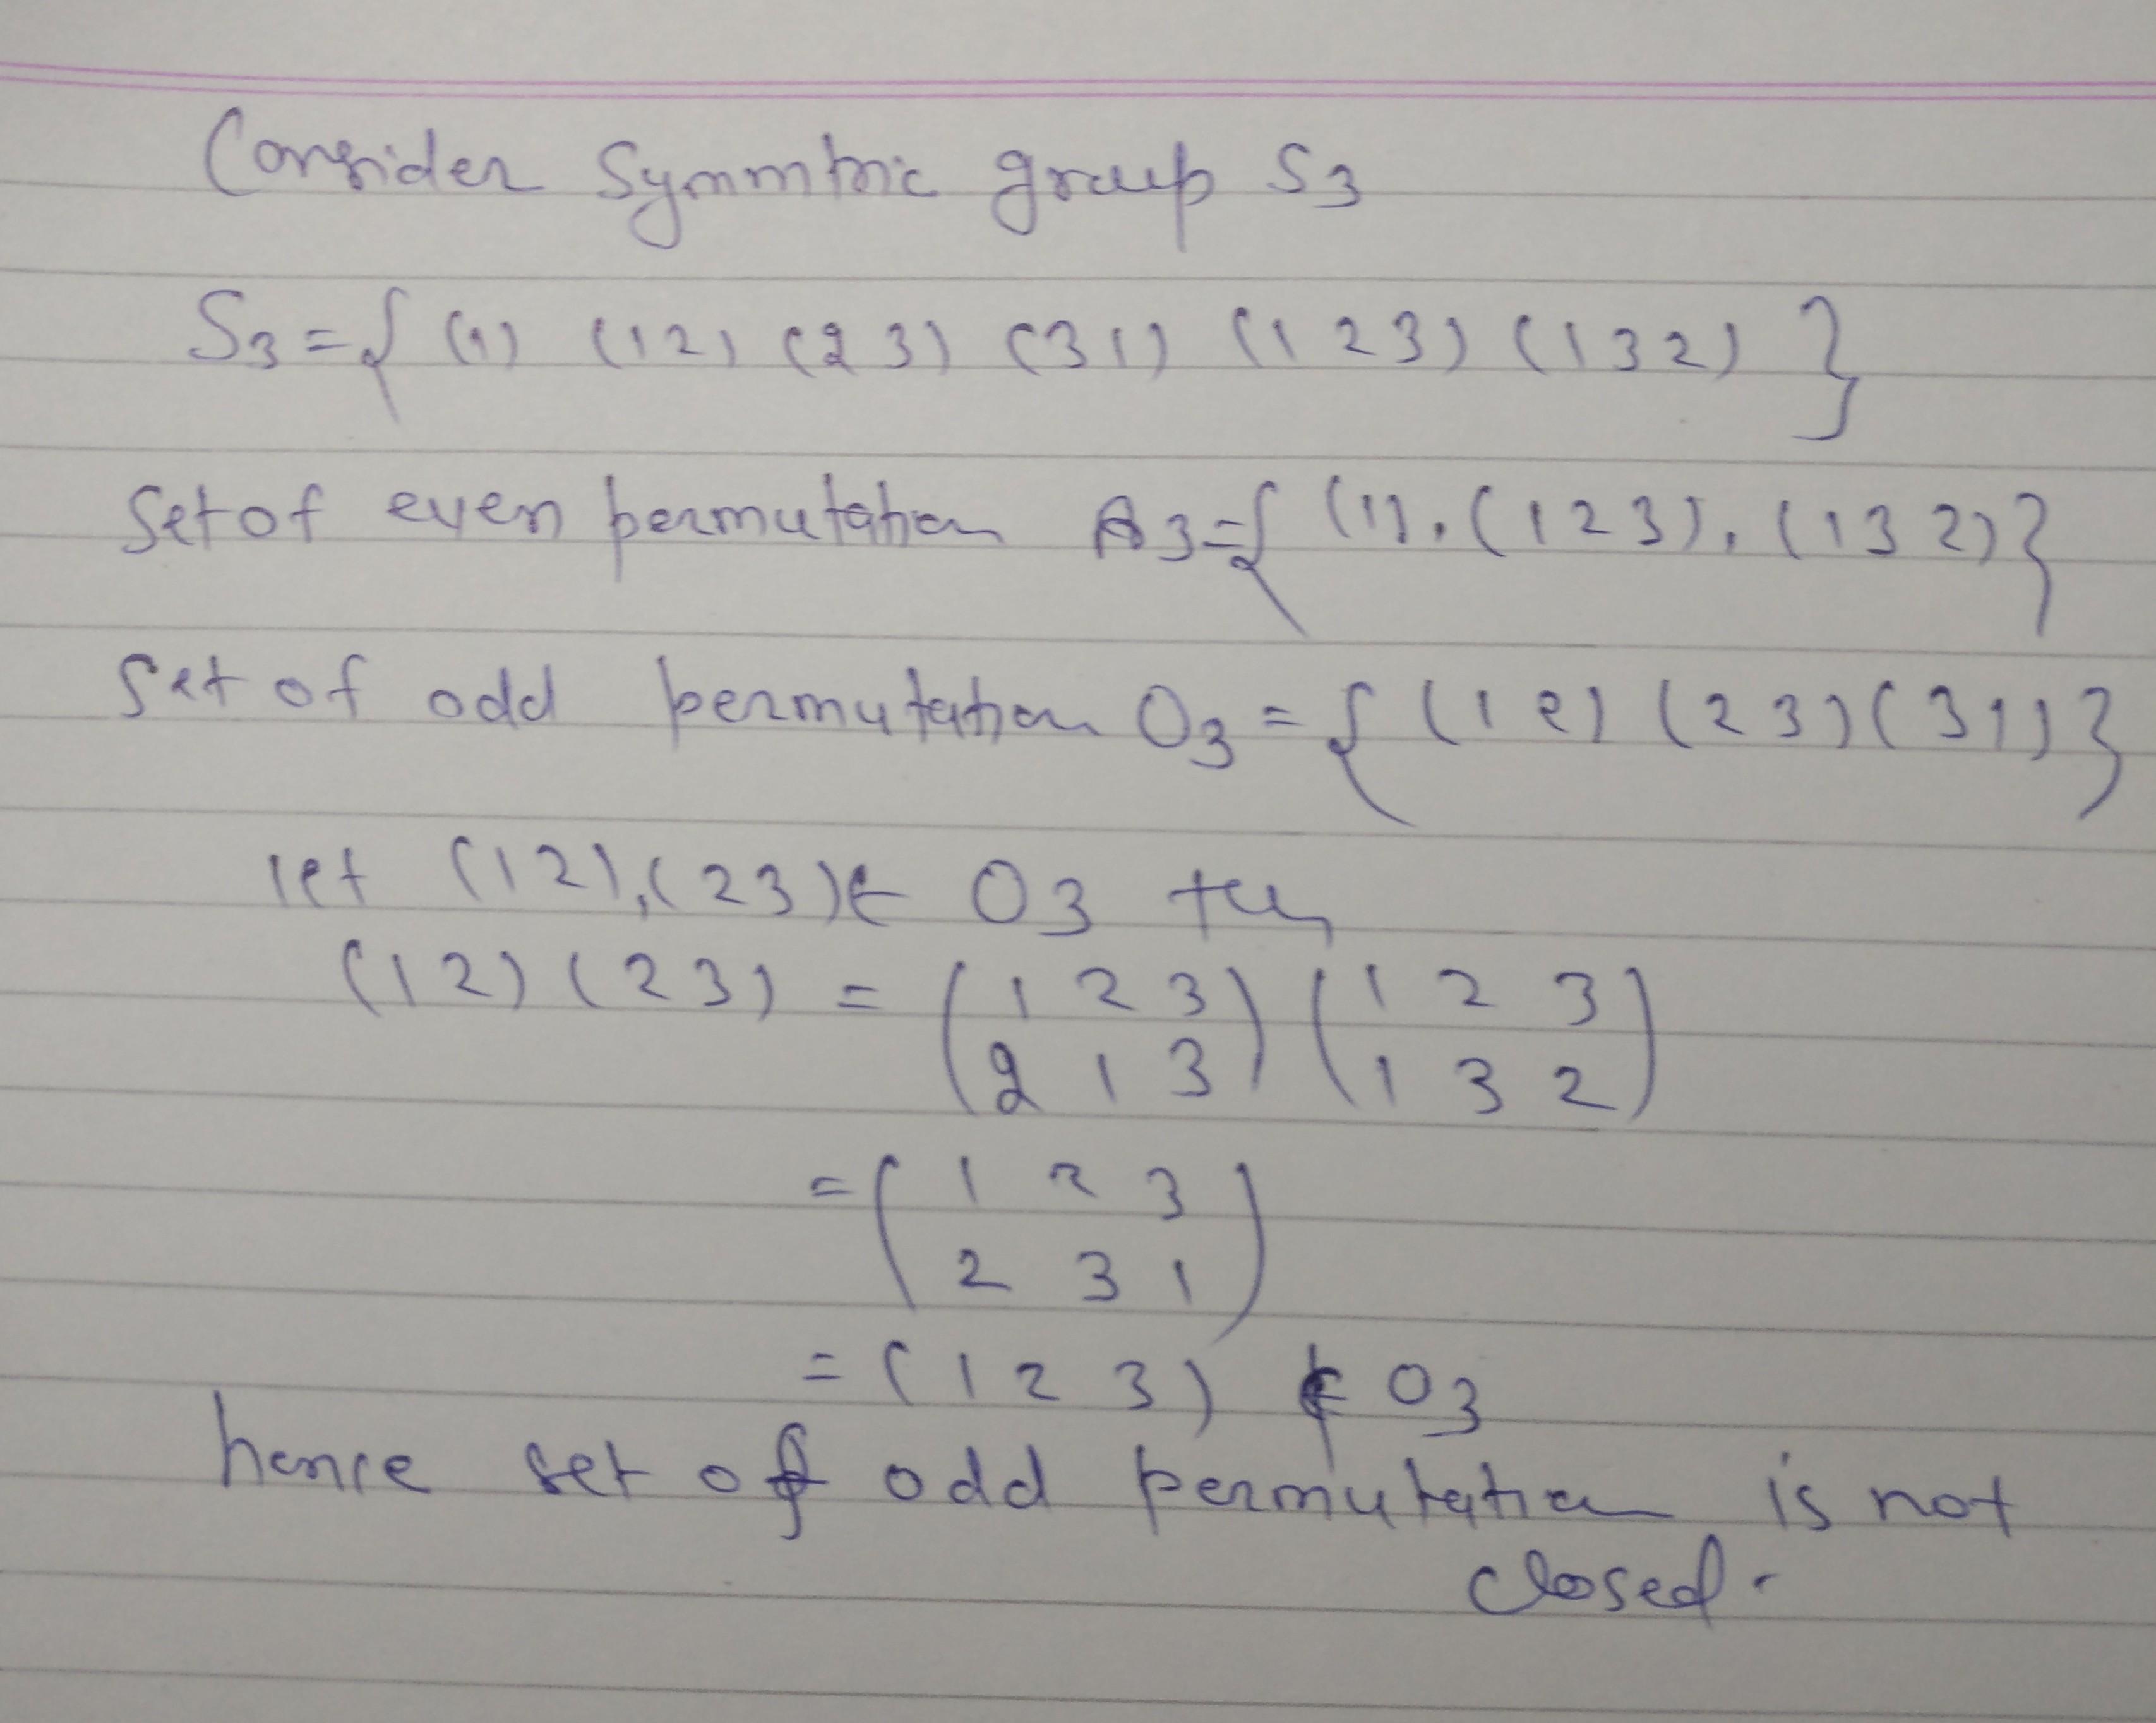 Consider Symmtric group S3
S3 = { (1) (12) (23) (31) (1 2 3) (1 3 2) }
Set of even permutation A3 = { (1), (1 2 3), (1 3 2) }
Set of odd permutation O3 = { (1 2) (2 3) (3 1) }
let (12), (23) ∈ O3 then
(12) (23) = ( 1 2 3 ) ( 1 2 3 )
( 2 1 3 ) ( 1 3 2 )
= ( 1 2 3 )
( 2 3 1 )
= (1 2 3) ∉ O3
hence set of odd permutation is not
closed.